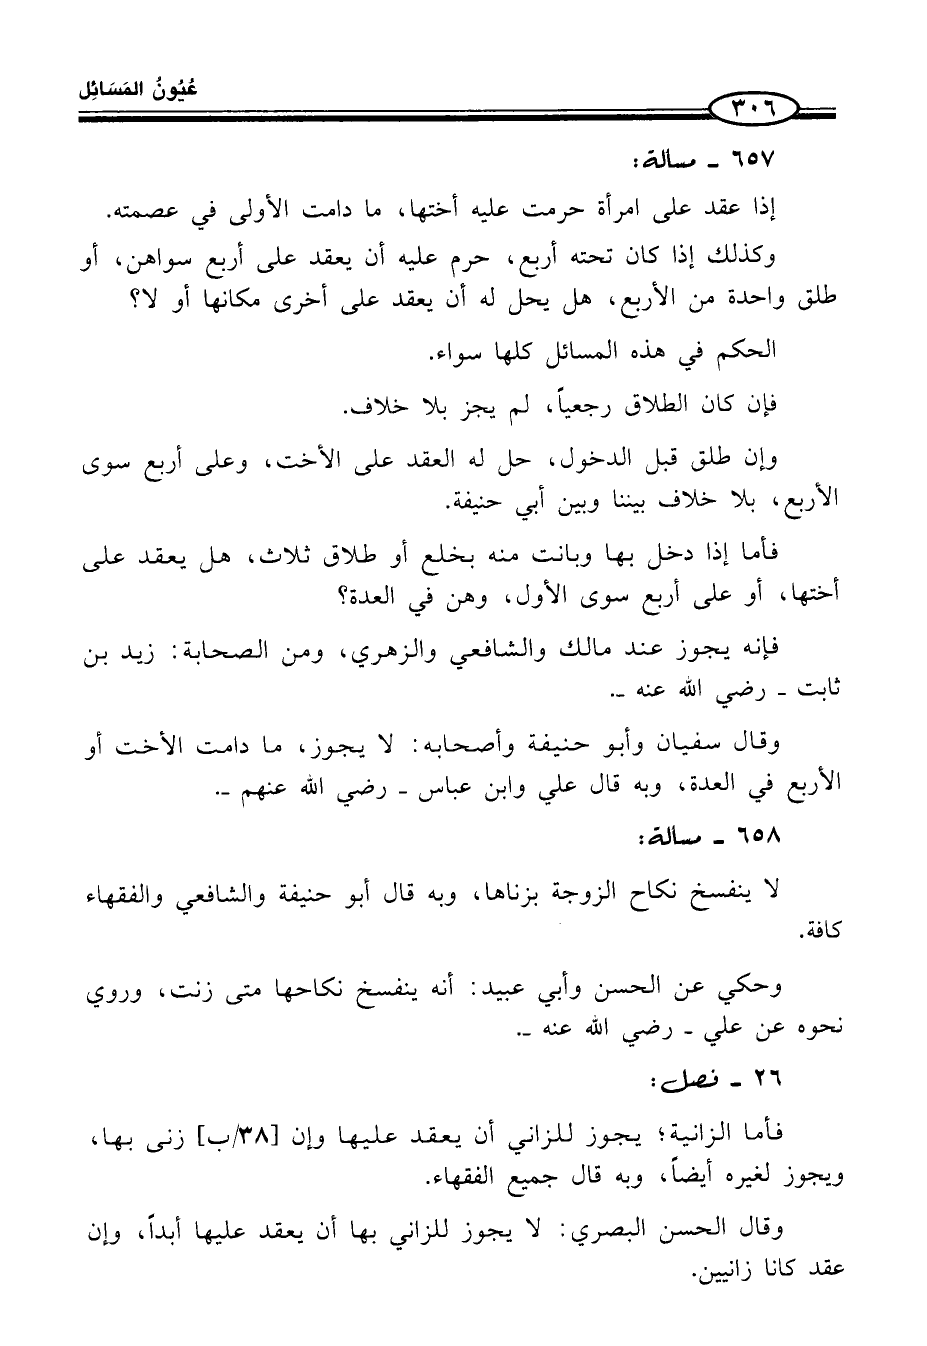 عُيُونُ المَسَائِل
٣٠٦
٦٥٧ ـ مسألة:
إذا عقد على امرأة حرمت عليه أختها، ما دامت الأولى في عصمته.
وكذلك إذا كان تحته أربع، حرم عليه أن يعقد على أربع سواهن، أو
طلق واحدة من الأربع، هل يحل له أن يعقد على أخرى مكانها أو لا؟
الحكم في هذه المسائل كلها سواء.
فإن كان الطلاق رجعياً، لم يجز بلا خلاف.
وإن طلق قبل الدخول، حل له العقد على الأخت، وعلى أربع سوى
الأربع، بلا خلاف بيننا وبين أبي حنيفة.
فأما إذا دخل بها وبانت منه بخلع أو طلاق ثلاث، هل يعقد على
أختها، أو على أربع سوى الأول، وهن في العدة؟
فإنه يجوز عند مالك والشافعي والزهري، ومن الصحابة: زيد بن
ثابت ـ رضي الله عنه ـ.
وقال سفيان وأبو حنيفة وأصحابه: لا يجوز، ما دامت الأخت أو
الأربع في العدة، وبه قال علي وابن عباس ـ رضي الله عنهم ـ.
٦٥٨ ـ مسألة:
لا ينفسخ نكاح الزوجة بزناها، وبه قال أبو حنيفة والشافعي والفقهاء
كافة.
وحكي عن الحسن وأبي عبيد: أنه ينفسخ نكاحها متى زنت، وروي
نحوه عن علي ـ رضي الله عنه ـ.
٢٦ ـ فصل:
فأما الزانية؛ يجوز للزاني أن يعقد عليها وإن [٣٨/ب] زنى بها،
ويجوز لغيره أيضاً، وبه قال جميع الفقهاء.
وقال الحسن البصري: لا يجوز للزاني بها أن يعقد عليها أبداً، وإن
عقد كانا زانيين.